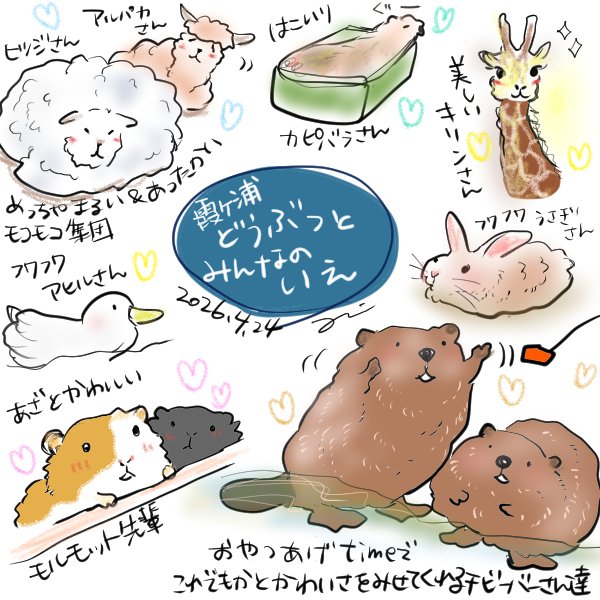 アルパカさん
ヒツジさん
めっちゃまるい&あったかい
モコモコ集団
はこいり
ぐー
カピバラさん
美しいキリンさん
霞ヶ浦
どうぶつと
みんなの
いえ
2026.4.24
フワフワ
アヒルさん
フワフワうさぎさん
あざとかわいい
モルモット先輩
おやつあげtimeで
これでもかとかわいさをみせてくれるチビーバーさん達